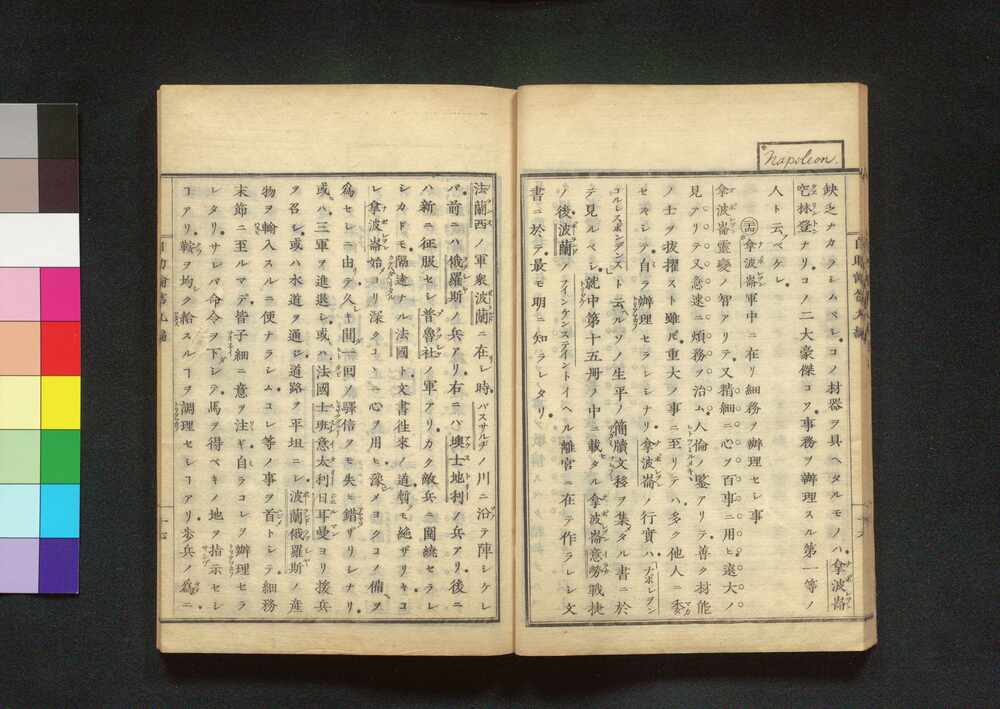 Napoleon.
缺乏ナカラシムベシ。コノ材器ヲ具ヘタルモノハ拿波崙
空林登ナリ。コノ二大豪傑コソ事務ヲ辦理スル第一等ノ
人ト云ベケレ
拿波崙軍中ニ在リ細務ヲ辦理セシ事
拿波崙靈變ノ智アリテ又精細ニ心ヲ百事ニ用ヒ遠大ノ
見アリテ又意速ニ煩務ヲ治ム人倫ノ鑒アリテ善ク材能
ノ士ヲ拔擢スト雖𪜈重大ノ事ニ至リテハ多ク他人ニ委
セズシテ自ラ辦理セラレシナリ拿波崙ノ行實ハナポレヲン
コルレスポンデンスト云ヘルソノ生平ノ簡牘文移ヲ集タル書ニ於
テ見ルベシ就中第十五册ノ中ニ載タル拿波崙意勞戰捷
ノ後波蘭ノフインケンステイントイヘル離宮ニ在テ作ラレシ文
書ニ於テ最モ明ニ知ラレタリ
法蘭西ノ軍衆波蘭ニ在シ時パスサルヂノ川ニ沿テ陣シケレ
バ前ニハ俄羅斯ノ兵アリ右ニハ墺土地利ノ兵アリ後ニ
ハ新ニ征服セシ普魯社ノ軍アリカク敵兵ニ圍繞セラレ
シカドモ隔遠ナル法國ト文書徃來ノ道暫モ絶ザリキコ
レ拿波崙始ヨリ深クコヽニ心ヲ用ヒ豫メヨクコノ備ヲ
爲セシニ由テ久キ間一回ノ驛信ヲモ失ヒ錯ザリシナリ
或ハ三軍ヲ進退シ或ハ法國士班意太利日耳曼ヨリ援兵
ヲ召シ或ハ水道ヲ通ジ道路ヲ平坦ニシ波蘭俄羅斯ノ産
物ヲ輸入スルニ便ナラシムコレ等ノ事ヲ首トシテ細務
末節ニ至ルマデ皆子細ニ意ヲ注ギ自ラコレヲ辦理セラ
レタリサレバ命令ヲ下シテ馬ヲ得ベキノ地ヲ指示セシ
ヿアリ鞍ヲ均ク給スルヿヲ調理セシヿアリ歩兵ノ爲ニ